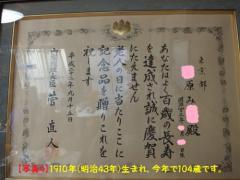 東京都
原 み 殿
あなたはよく百歳の長寿
を達成され誠に慶賀
にたえません
老人の日に当たりここに
記念品を贈りこれを
祝します
平成二十二年九月十五日
内閣総理大臣 菅 直人
【写真4】1910年(明治43年)生まれ、今年で104歳です。